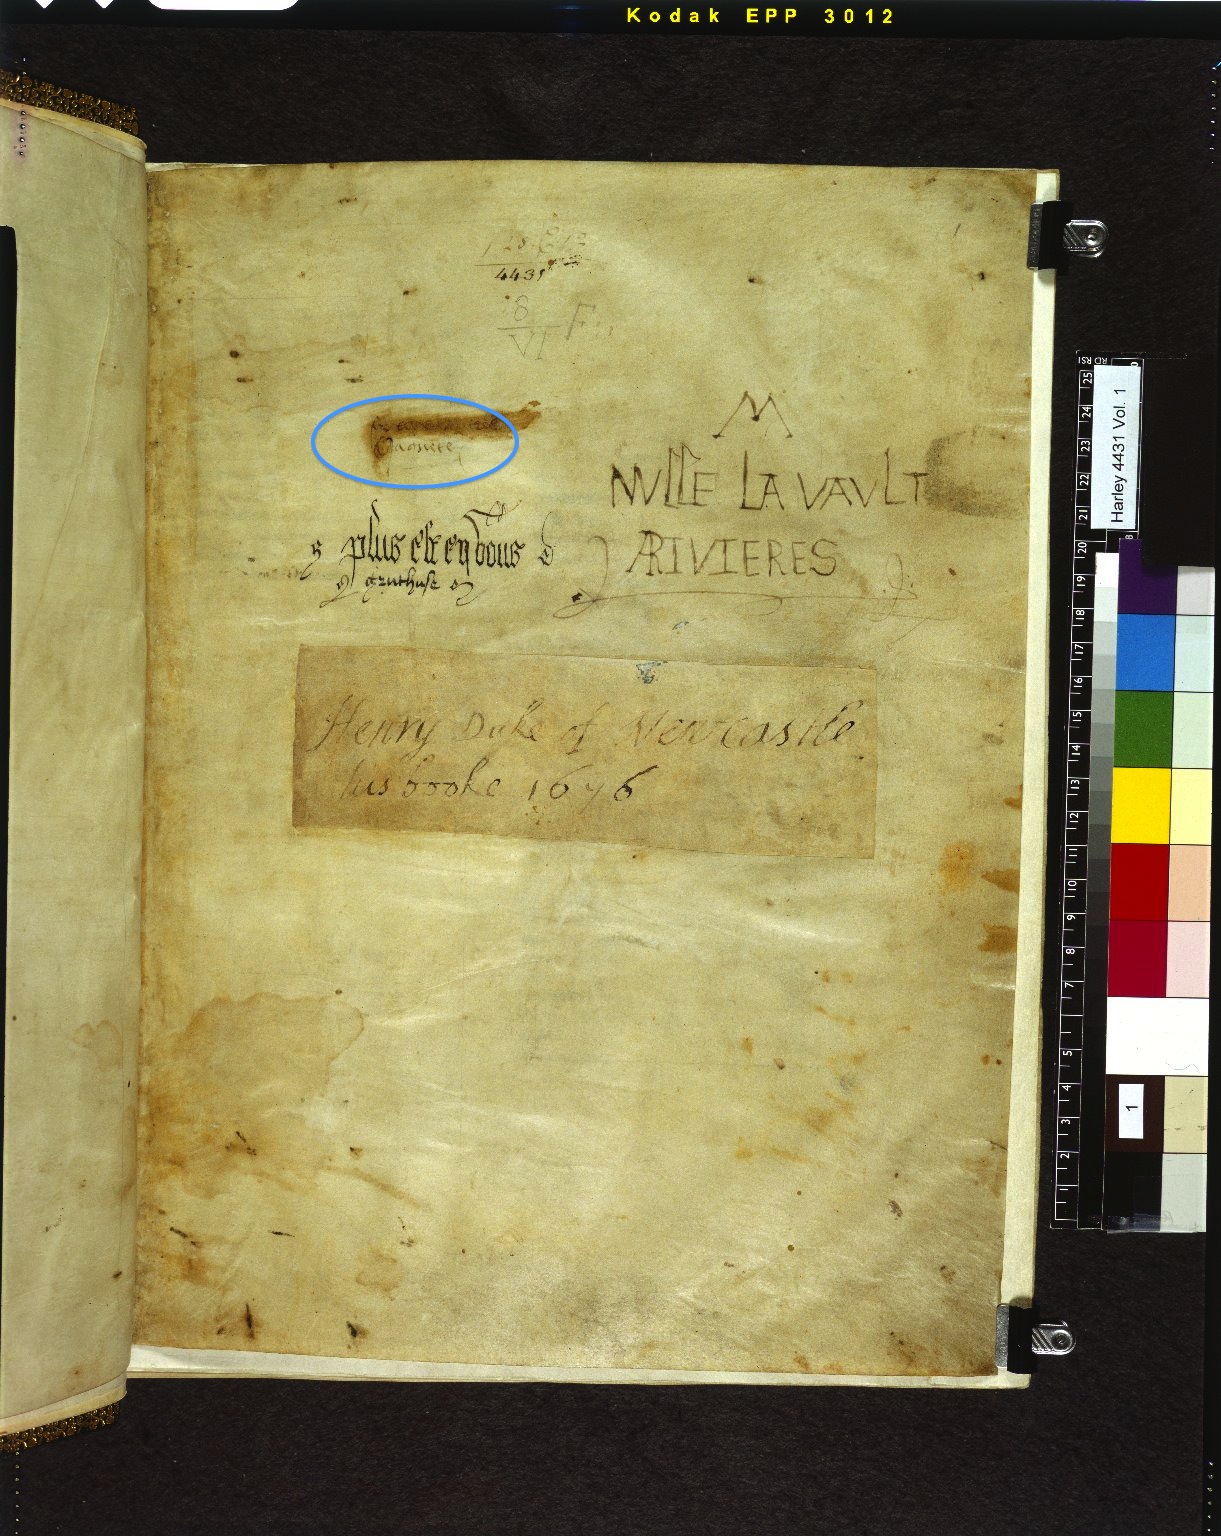 Kodak EPP 3012
4431
8
VI F
M
NVLLE LA VAVLT
RIVIERES
plus est en vous
gruthuse
Henry Duke of Newcastle
his booke 1676
Harley 4431 Vol. 1
1